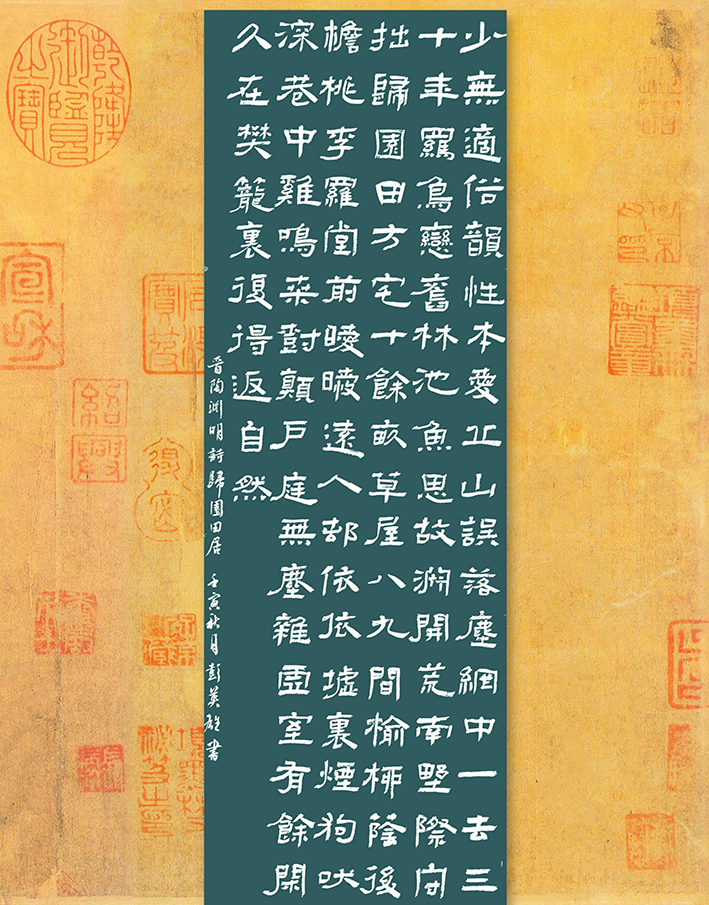 少無適俗韻性本愛丘山誤落塵網中一去三
十年羈鳥戀舊林池魚思故淵開荒南野際守
拙歸園田方宅十餘畝草屋八九間榆柳蔭後
檐桃李羅堂前曖曖遠人邨依依墟裏煙狗吠
深巷中雞鳴桒對顛戶庭無塵雜虛室有餘閑
久在樊籠裏復得返自然
晉陶淵明詩歸園田居 壬寅秋月彭英書
乾隆御覽之寶
宣和
紹興